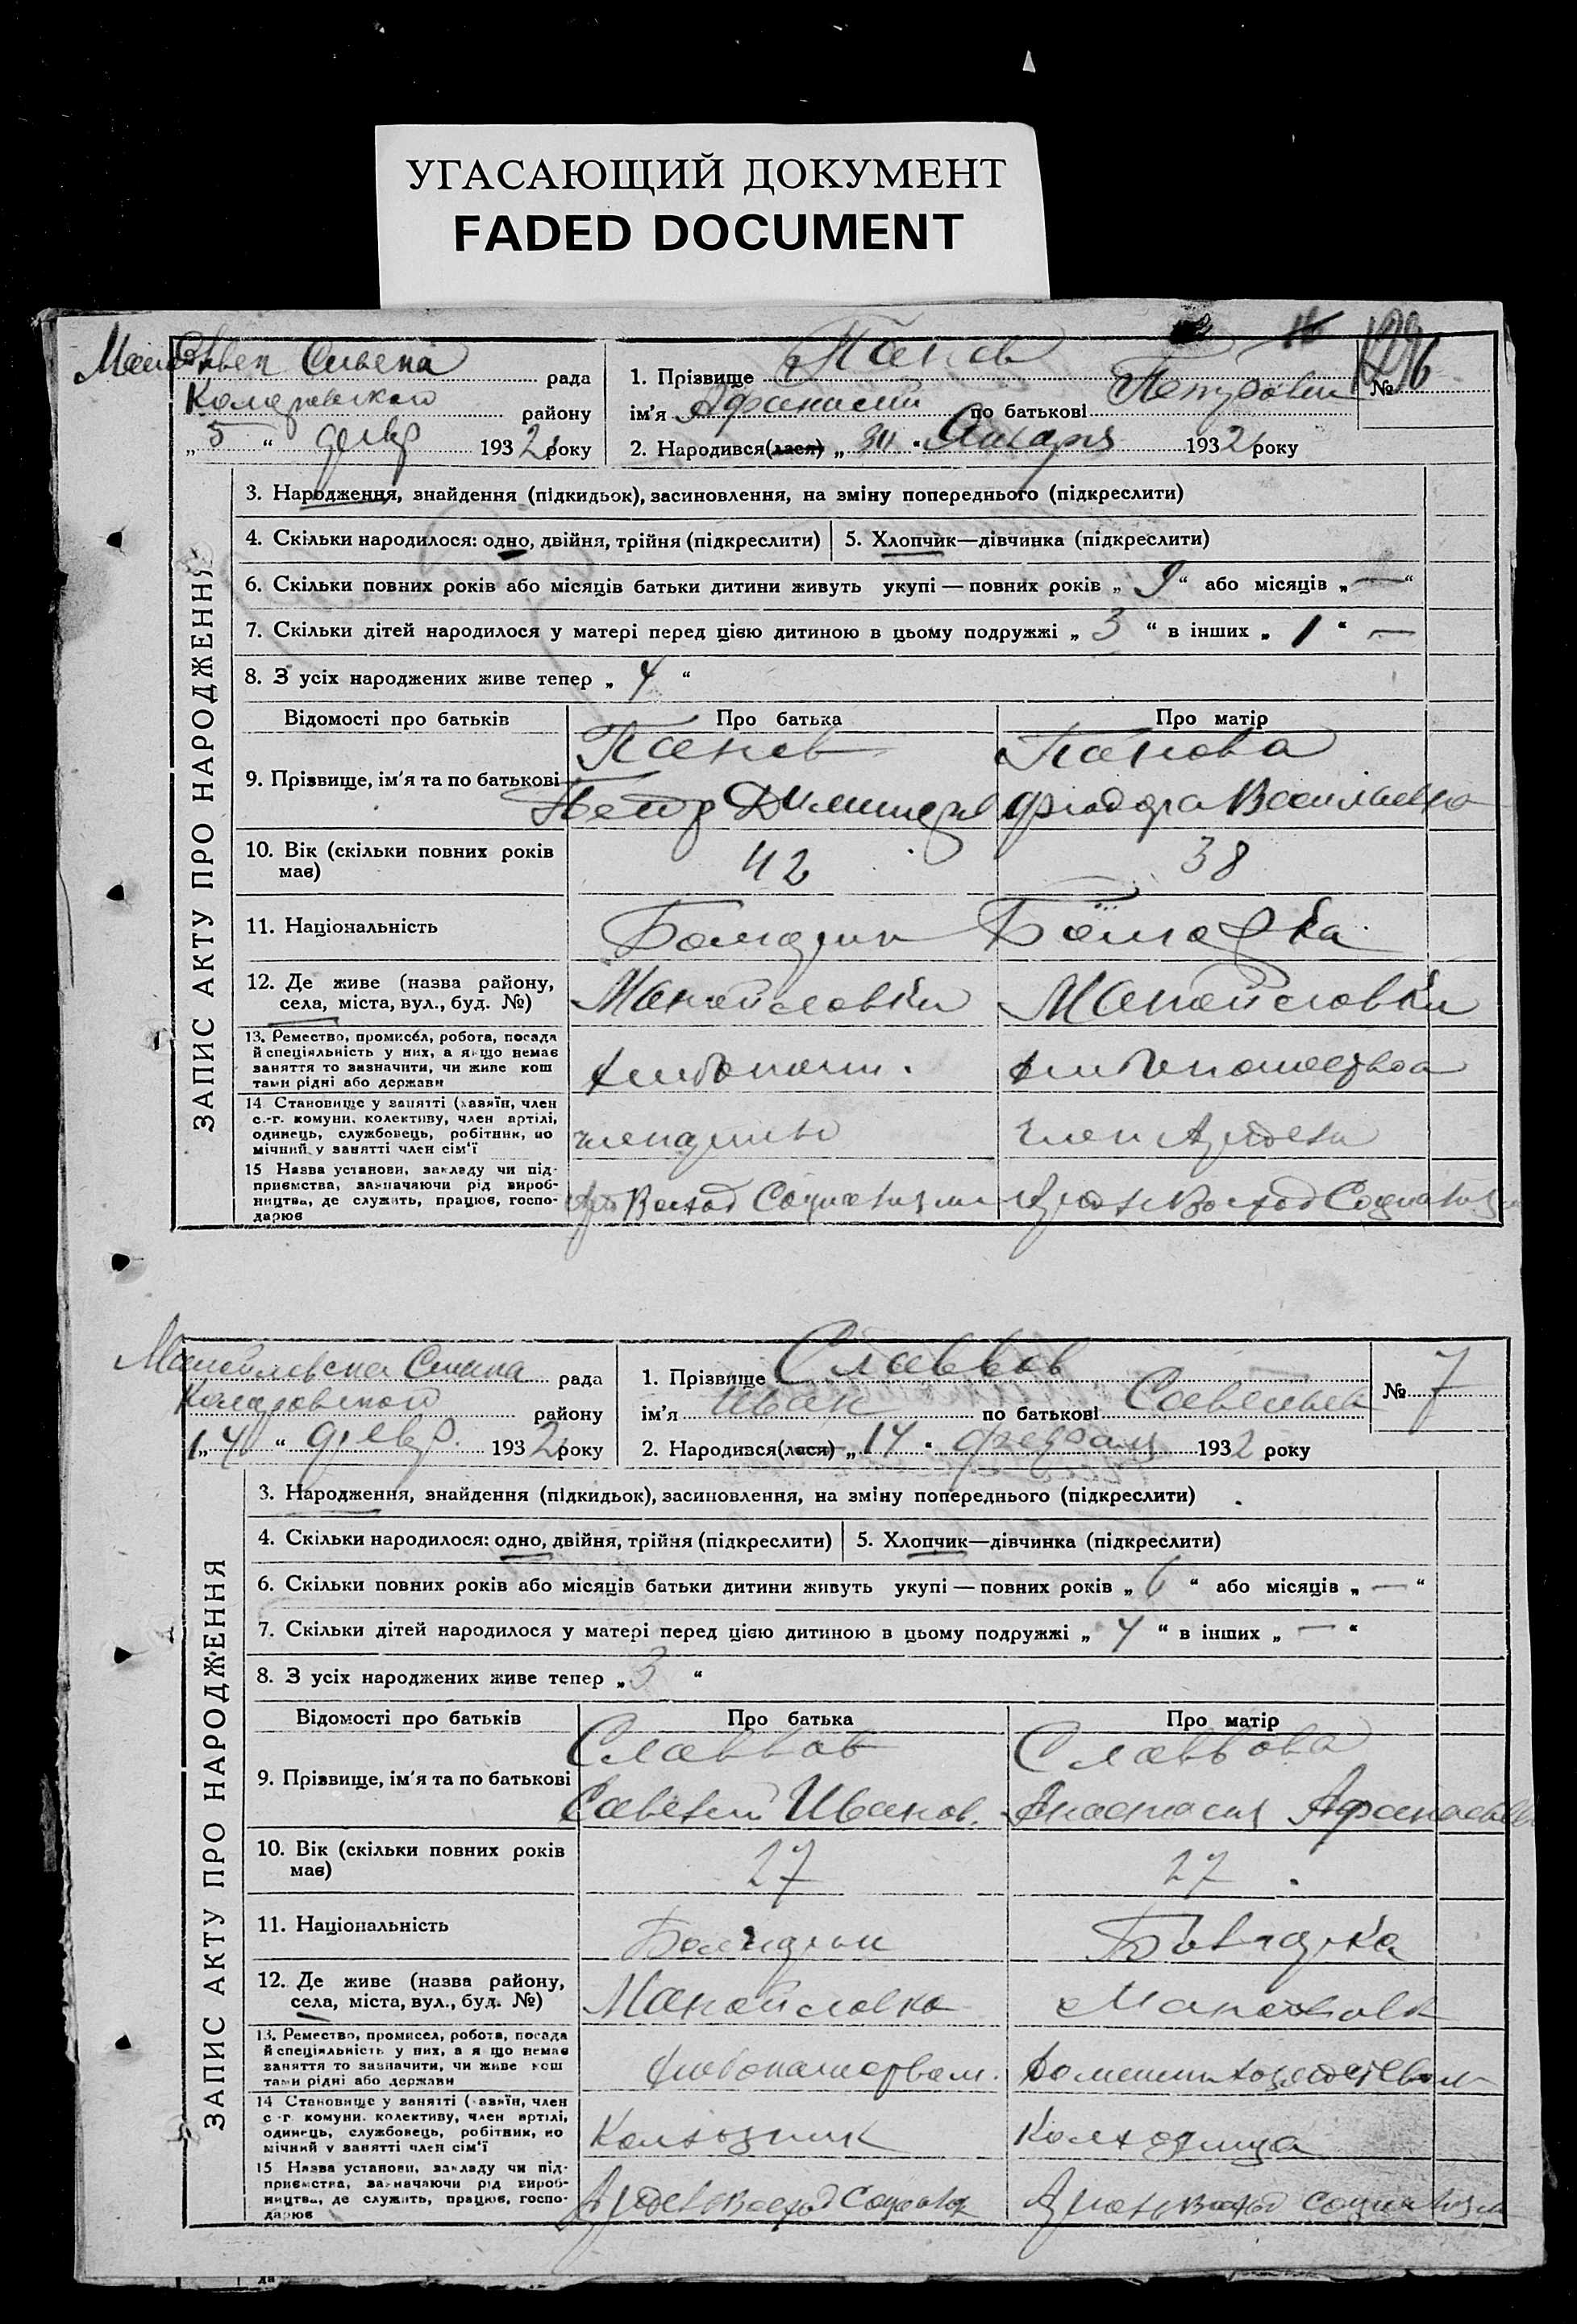 УГАСАЮЩИЙ ДОКУМЕНТ
FADED DOCUMENT
рада
Коларовского району
„5“ февр 1932 року
1. Прізвище Панов
ім'я Афанасий по батькові Петрович
2. Народився(лася) „ “ Января 1932 року
№ 6
ЗАПИС АКТУ ПРО НАРОДЖЕННЯ
3. Народження, знайдення (підкидьок), засиновлення, на зміну попереднього (підкреслити)
4. Скільки народилося: одно, двійня, трійня (підкреслити) 5. Хлопчик—дівчинка (підкреслити)
6. Скільки повних років або місяців батьки дитини живуть укупі — повних років „ 9 “ або місяців „ — “
7. Скільки дітей народилося у матері перед цією дитиною в цьому подружжі „ 3 “ в інших „ 1 “ —
8. З усіх народжених живе тепер „ 4 “
Відомості про батьків Про батька Про матір
9. Прізвище, ім'я та по батькові
Панов Панова
Петр Димитров Феодора Васильевна
10. Вік (скільки повних років має) 42 38
11. Національність Болгарин Болгарка
12. Де живе (назва району, села, міста, вул., буд. №) Манойловки Манойловки
13. Ремество, промисел, робота, посада
й спеціяльність у них, а якщо немає
заняття то зазначити, чи живе кош
тами рідні або держави
хлебопаш.
14 Становище у занятті (хазяїн, член
с.-г. комуни, колективу, член артілі,
одинець, службовець, робітник, по
мічний у занятті член сім'ї
член Артели
15 Назва установи, закладу чи під-
приємства, зазначаючи рід вироб-
ництва, де служить, працює, госпо-
дарює
Восход Социализм Артель Восход Социализм
рада
Коларовского району
„14“ февр. 1932 року
1. Прізвище Славов
ім'я Иван по батькові Савельев
2. Народився(лася) „ 14 “ февраля 1932 року
№ 7
ЗАПИС АКТУ ПРО НАРОДЖЕННЯ
3. Народження, знайдення (підкидьок), засиновлення, на зміну попереднього (підкреслити)
4. Скільки народилося: одно, двійня, трійня (підкреслити) 5. Хлопчик—дівчинка (підкреслити)
6. Скільки повних років або місяців батьки дитини живуть укупі — повних років „ 6 “ або місяців „ — “
7. Скільки дітей народилося у матері перед цією дитиною в цьому подружжі „ 4 “ в інших „ — “
8. З усіх народжених живе тепер „ 3 “
Відомості про батьків Про батька Про матір
9. Прізвище, ім'я та по батькові
Славов Славова
Савелий Иванов. Анастасия
10. Вік (скільки повних років має) 27 27
11. Національність Болгарин Болгарка
12. Де живе (назва району, села, міста, вул., буд. №) Манойловка
13. Ремество, промисел, робота, посада
й спеціяльність у них, а якщо немає
заняття то зазначити, чи живе кош
тами рідні або держави
хлебопашеством.
14 Становище у занятті (хазяїн, член
с-г комуни, колективу, член артілі,
одинець, службовець, робітник, по
мічний у занятті член сім'ї
Колхозник Колхозница
15 Назва установи, закладу чи під-
приємства, зазначаючи рід вироб-
ництва, де служить, працює, госпо-
дарює
Артель Восход Артель Восход
да